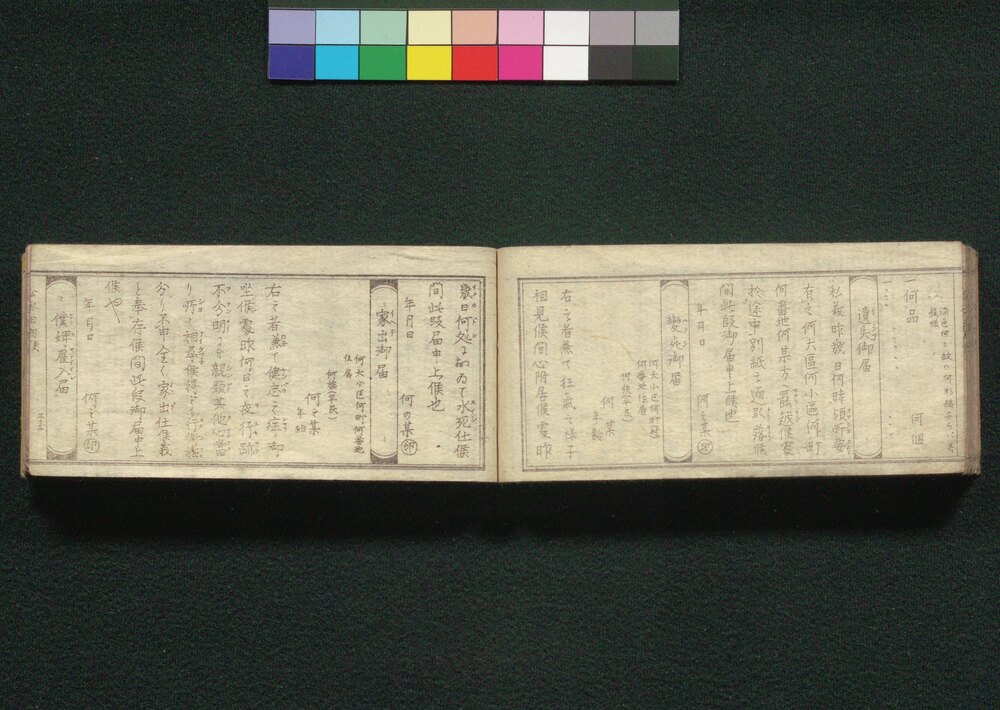 何品 何個
遺失御届
私義昨幾日何時頃所要
有之何大區何小區何町
何番地何某方へ罷越候處
於途中別紙之通取落候
間此段御届申上候也
年月日 何之某 印
變死御届
何大小区何町(村)
何番地住居
何族(平民)
何ノ某
年齢
右之者兼て狂氣之様子
相見候間心附居候處昨
幾日何処におゐて水死仕候
間此段届申上候也
年月日 何の某 印
家出御届
何大小区何町何番地
住居
何族(平民)
何之某
年齢
右之者兼て健忘之症ニ御
坐候處昨何日之夜行跡
不分明ニ付親類其他心當
り所々相尋候得とも行衛
分り不申全く家出仕候義
と奉存候間此段御届申上
候也
年月日 何之某 印
僕婢雇入届